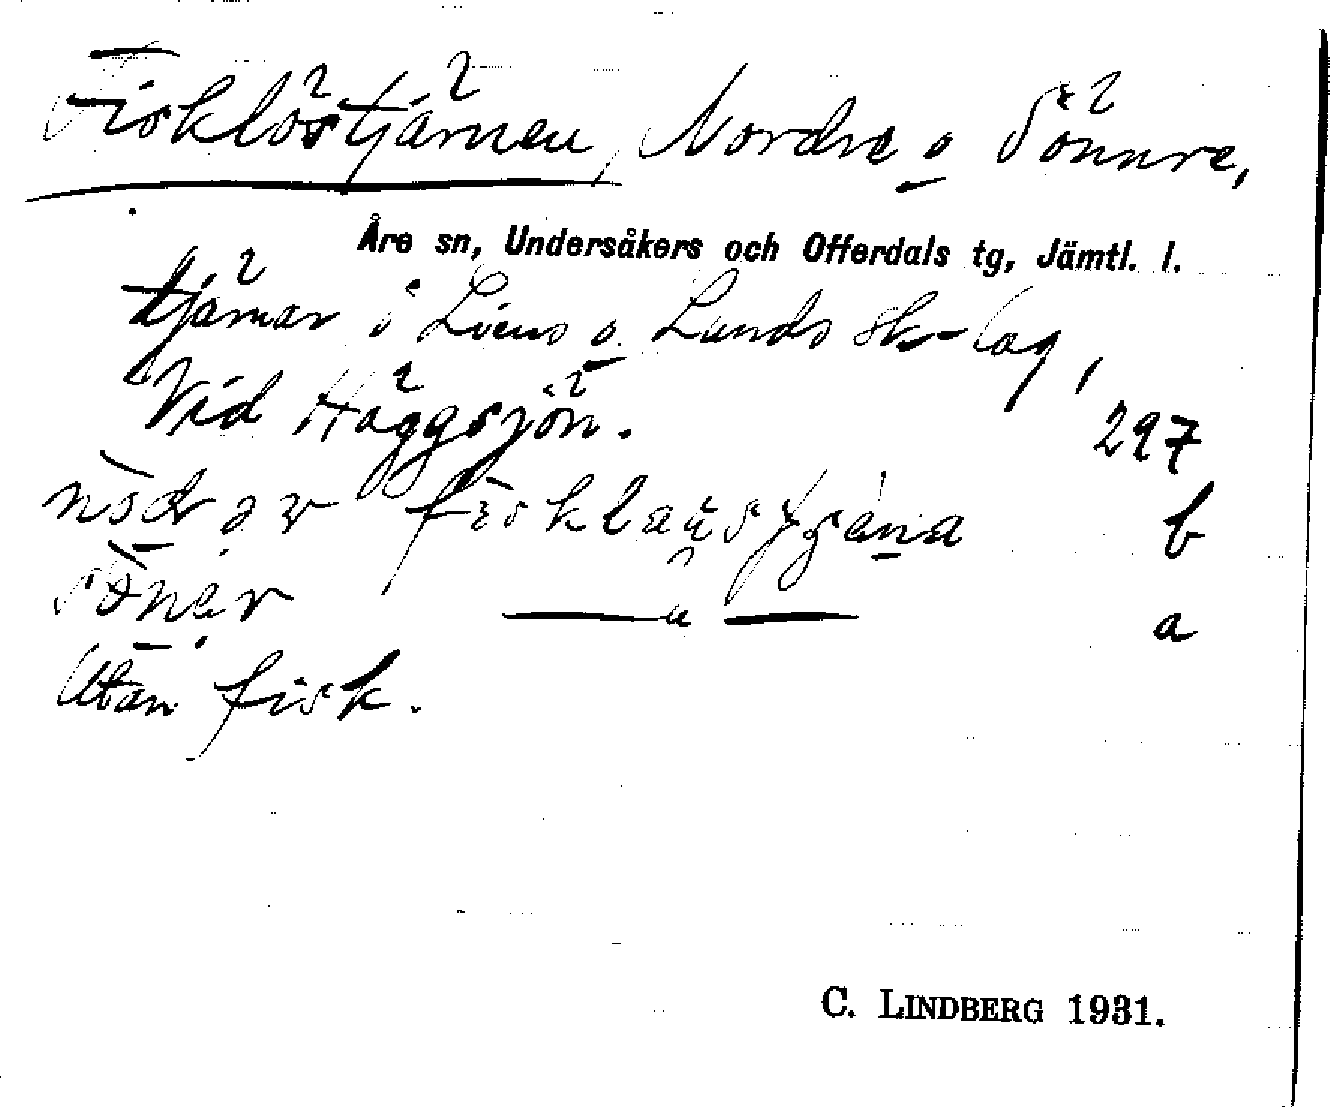 Fisklöstjärnen, Nordre o Sönnre,
Åre sn, Undersåkers och Offerdals tg, Jämtl. l.
tjärnar i Liens o Lunds sk-lag,
Vid Häggsjön.
297
b
a
Utan fisk.
C. LINDBERG 1931.